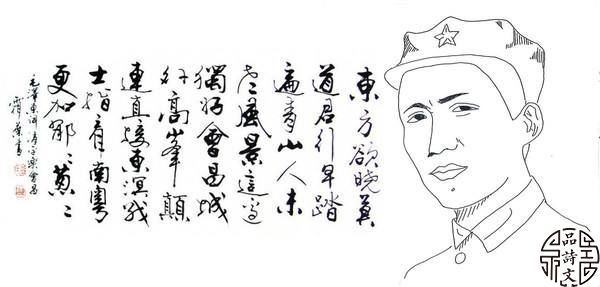 東方欲曉莫
道君行早踏
遍青山人未
老風景這邊
獨好會昌城
外高峯顛
連直接東溟戰
士指看南粵
更加郁〻葱〻
毛澤東詞清平樂會昌
品詩文